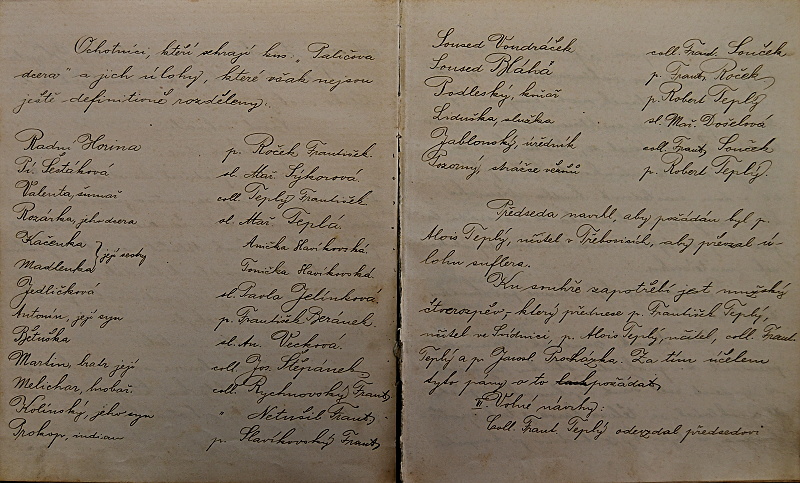 Ochotníci, kteří sehrají kus „Paličova
dcera" a jich úlohy, které však nejsou
ještě definitivně rozděleny:
Radní Horina p. Roček František.
Pí. Šestáková sl. Mař. Sýkorová.
Valenta, šumař coll. Teplý František.
Rozárka, jeho dcera sl. Mař. Teplá.
Kačenka Anička Slavíkovská.
Madlenka } její sestry Tonička Slavíkovská.
Jedličková sl. Pavla Jelínková.
Antonín, její syn p. František Beránek.
Bětuška sl. An. Vecková.
Martin, bratr její coll. Jos. Štěpánek,
Melichar, hrobař. coll. Rychnovský Frant,
Kolínský, jeho syn " Netušil Frant,
Prokop, indian p. Slavíkovský Frant,
Soused Vondráček coll. Frant. Souček
Soused Bláha p. Frant. Roček,
Podleský, kovář p. Robert Teplý
Liduška, služka sl. Mař. Došelová
Jablonský, úředník coll. Frant, Souček
Pozorný, strážce vězňů p. Robert Teplý.
Předseda navrhl, aby požádán byl p.
Alois Teplý, učitel v Třebovisích, aby převzal ú-
lohu suflera.
Ku souhře zapotřebí jest mužský
čtverozpěv, který přednese p. František Teplý,
učitel ve Svídnici, p. Alois Teplý, učitel, coll. Frant.
Teplý a p. Jarosl. Procházka. Za tím účelem
tyto pány o to požádat,
II. Volné návrhy:
Coll. Frant. Teplý odevzdal předsedovi